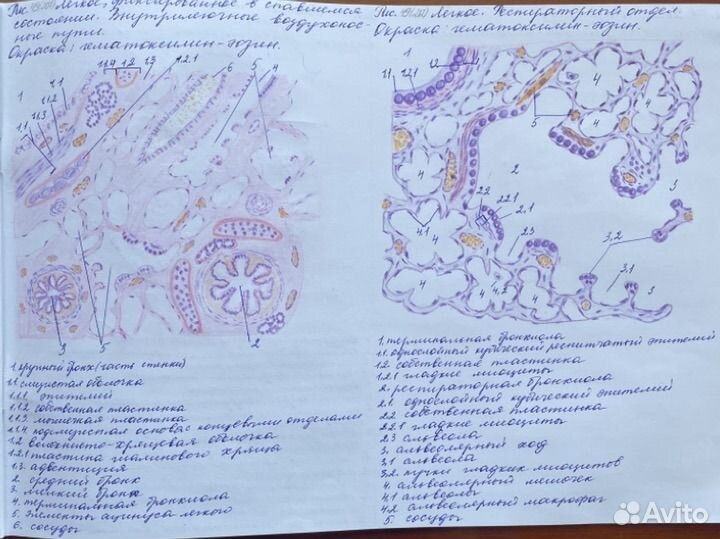 Рис. Легкое, фиксированное в спавшемся
состоянии. Внутрилегочные воздухонос-
ные пути.
Окраска: гематоксилин-эозин.
1.1.4 1.2 1.3 1.2.1 6 5 4
4.1
1.1.2
1
1.1.3
1.1
3 5 2
1. крупный бронх (часть стенки)
1.1 слизистая оболочка
1.1.1 эпителий
1.1.2 собственная пластинка
1.1.3 мышечная пластинка
1.1.4 подслизистая основа с концевыми отделами
1.2 волокнисто-хрящевая оболочка
1.2.1 пластина гиалинового хряща
1.3. адвентиция
2. средний бронх
3. мелкий бронх
4. терминальная бронхиола
5. элементы ацинуса легкого
6. сосуды
Рис. Легкое. Респираторный отдел.
Окраска: гематоксилин-эозин.
1
1.2 4 4
1.1 1.2.1
5 4
4 2
2.2 2.2.1 3
4 2.1
4.1 2.3 3.2
4 4.2 3.1
4 3
1. терминальная бронхиола
1.1. однослойный кубический реснитчатый эпителий
1.2 собственная пластинка
1.2.1 гладкие миоциты
2. респираторная бронхиола
2.1 однослойный кубический эпителий
2.2 собственная пластинка
2.2.1 гладкие миоциты
2.3 альвеола
3. альвеолярный ход
3.1 альвеола
3.2. пучки гладких миоцитов
4. альвеолярный мешочек
4.1 альвеолы
4.2 альвеолярный макрофаг
5. сосуды
Avito